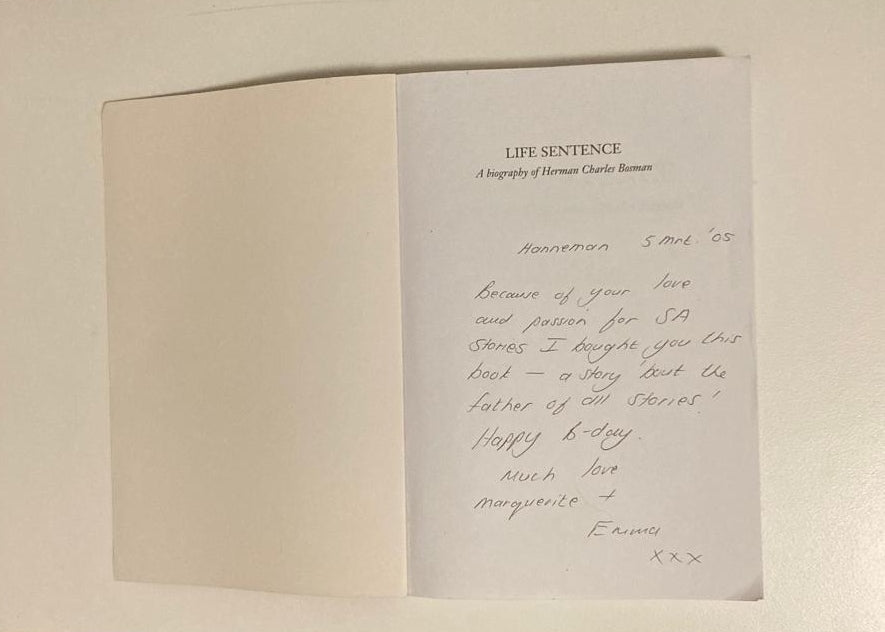 LIFE SENTENCE
A biography of Herman Charles Bosman
Hanneman 5 Mrt. '05
Because of your love
and passion for SA
stories I bought you this
book — a story 'bout the
father of all stories!
Happy b-day.
Much love
Marguerite +
Emma
xxx